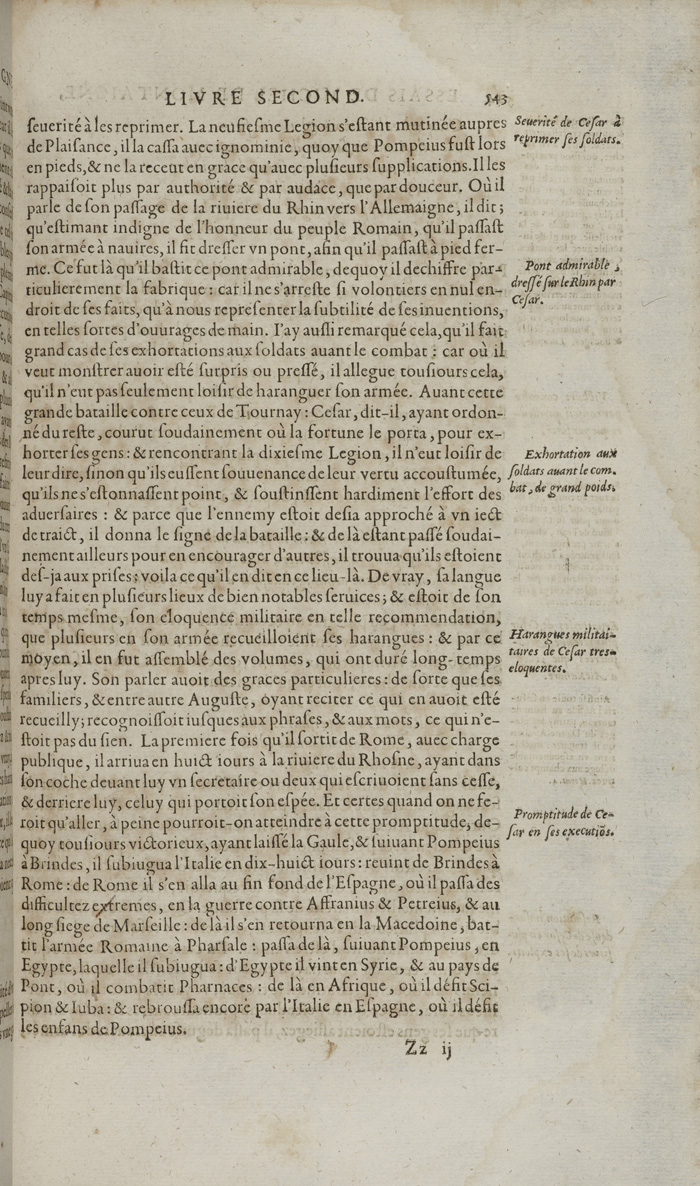 LIVRE SECOND. 543
ſeuerité à les reprimer. La neufieſme Legion s'eſtant mutinée aupres
de Plaiſance, il la caſſa auec ignominie, quoy que Pompeius fuſt lors
en pieds, & ne la receut en grace qu'auec pluſieurs ſupplications. Il les
rappaiſoit plus par authorité & par audace, que par douceur. Où il
parle de ſon paſſage de la riuiere du Rhin vers l'Allemaigne, il dit;
qu'eſtimant indigne de l'honneur du peuple Romain, qu'il paſſaſt
ſon armée à nauires, il fit dreſſer vn pont, afin qu'il paſſaſt à pied fer-
me. Ce fut là qu'il baſtit ce pont admirable, dequoy il dechiffre par-
ticulierement la fabrique : car il ne s'arreſte ſi volontiers en nul en-
droit de ſes faits, qu'à nous repreſenter la ſubtilité de ſes inuentions,
en telles ſortes d'ouurages de main. I'ay auſſi remarqué cela, qu'il fait
grand cas de ſes exhortations aux ſoldats auant le combat : car où il
veut monſtrer auoir eſté ſurpris ou preſſé, il allegue touſiours cela,
qu'il n'eut pas ſeulement loiſir de haranguer ſon armée. Auant cette
grande bataille contre ceux de Tournay : Ceſar, dit-il, ayant ordon-
né du reſte, courut ſoudainement où la fortune le porta, pour ex-
horter ſes gens : & rencontrant la dixieſme Legion, il n'eut loiſir de
leur dire, ſinon qu'ils euſſent ſouuenance de leur vertu accouſtumée,
qu'ils ne s'eſtonnaſſent point, & ſouſtinſſent hardiment l'effort des
aduerſaires : & parce que l'ennemy eſtoit deſia approché à vn iect
de traict, il donna le ſigne de la bataille : & de là eſtant paſſé ſoudai-
nement ailleurs pour en encourager d'autres, il trouua qu'ils eſtoient
deſ-ja aux priſes; voila ce qu'il en dit en ce lieu-là. De vray, ſa langue
luy a fait en pluſieurs lieux de bien notables ſeruices; & eſtoit de ſon
temps meſme, ſon eloquence militaire en telle recommendation,
que pluſieurs en ſon armée recueilloient ſes harangues : & par ce
moyen, il en fut aſſemblé des volumes, qui ont duré long-temps
apres luy. Son parler auoit des graces particulieres : de ſorte que ſes
familiers, & entre autre Auguſte, oyant reciter ce qui en auoit eſté
recueilly; recognoiſſoit iuſques aux phraſes, & aux mots, ce qui n'e-
ſtoit pas du ſien. La premiere fois qu'il ſortit de Rome, auec charge
publique, il arriua en huict iours à la riuiere du Rhoſne, ayant dans
ſon coche deuant luy vn ſecretaire ou deux qui eſcriuoient ſans ceſſe,
& derriere luy, celuy qui portoit ſon eſpée. Et certes quand on ne fe-
roit qu'aller, à peine pourroit-on atteindre à cette promptitude, de-
quoy touſiours victorieux, ayant laiſſé la Gaule, & ſuiuant Pompeius
à Brindes, il ſubiugua l'Italie en dix-huict iours : reuint de Brindes à
Rome : de Rome il s'en alla au fin fond de l'Eſpagne, où il paſſa des
difficultez extremes, en la guerre contre Affranius & Petreius, & au
long ſiege de Marſeille : de là il s'en retourna en la Macedoine, bat-
tit l'armée Romaine à Pharſale : paſſa de là, ſuiuant Pompeius, en
Egypte, laquelle il ſubiugua : d'Egypte il vint en Syrie, & au pays de
Pont, où il combatit Pharnaces : de là en Afrique, où il défit Sci-
pion & Iuba : & rebrouſſa encore par l'Italie en Eſpagne, où il défit
les enfans de Pompeius.
Zz ij
Seuerité de Ceſar à
reprimer ſes ſoldats.
Pont admirable
dreſſé ſur le Rhin par
Ceſar.
Exhortation aux
ſoldats auant le com-
bat, de grand poids.
Harangues militai-
taires de Ceſar tres-
eloquentes.
Promptitude de Ce-
ſar en ſes executiõs.